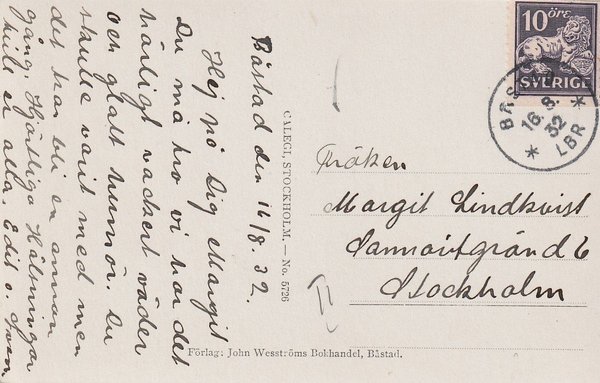 Båstad den 16/8. 32.
Hej på dig Margit
Du må tro vi har det
härligt vackert väder
och glatt humör. Du
skulle varit med men
det kan bli en annan
gång. Hjärtliga Hälsningar
till er alla. Edit o. Sven.
CALEGI, STOCKHOLM. — No. 5726
10 ÖRE
SVERIGE
BÅSTAD
16.8.
32
* LBR *
Fröken
Margit Lindkvist
Stockholm
Förlag: John Wesströms Bokhandel, Båstad.